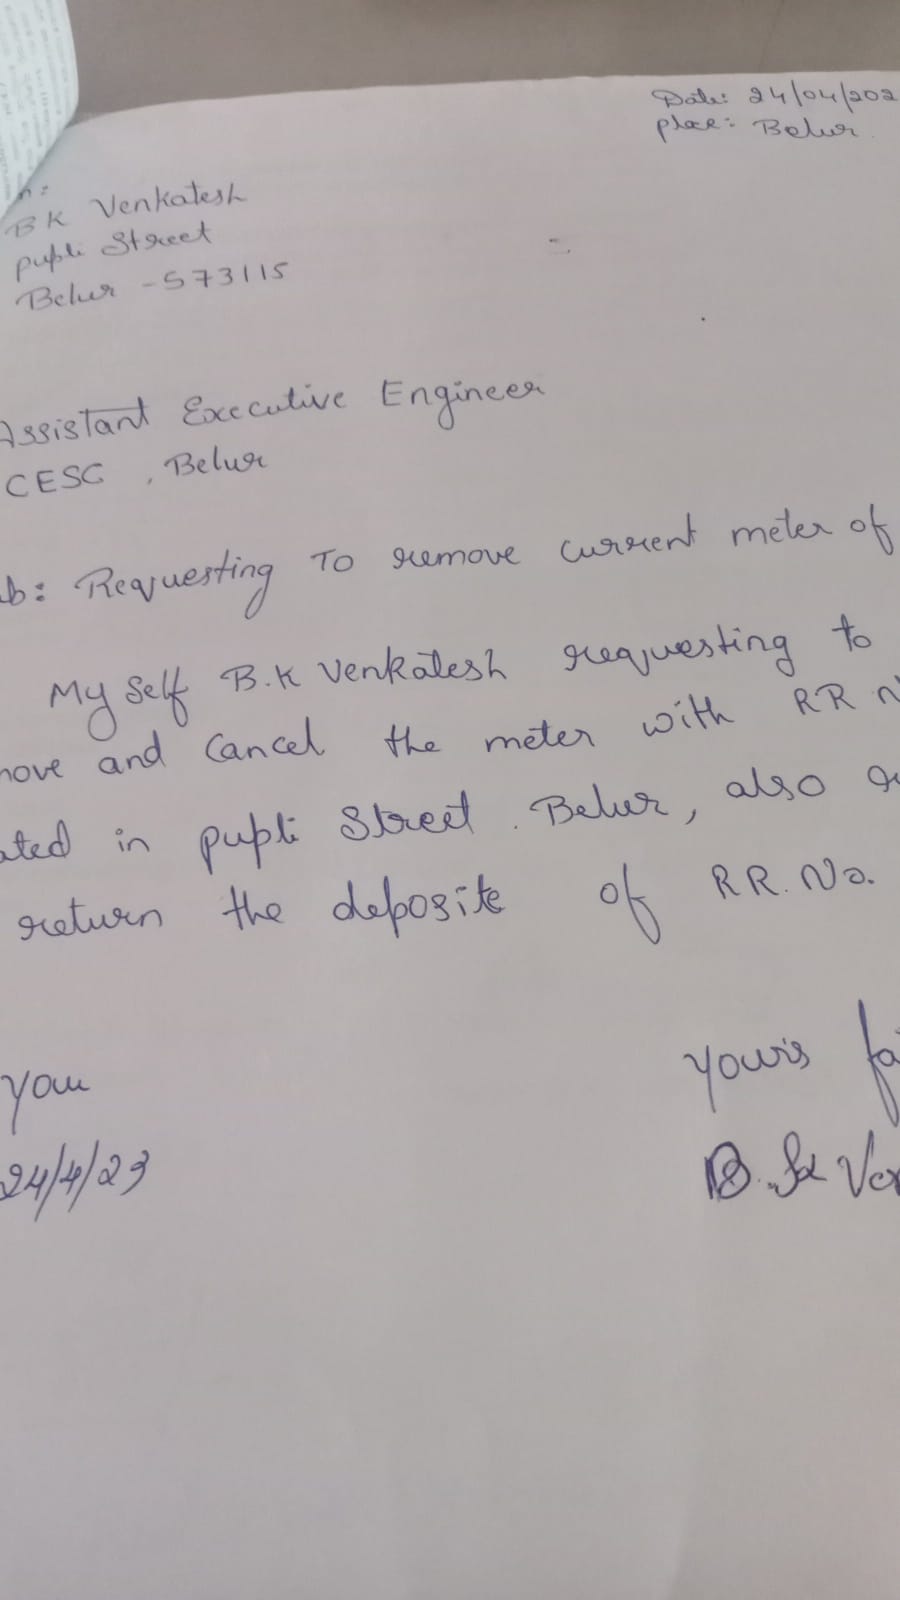 Date: 24/04/202
place: Belur
n:
BK Venkatesh
pupli Street
Belur - 573115
Assistant Executive Engineer
CESC, Belur
ub: Requesting To remove current meter of
My Self B.K Venkatesh requesting to
move and Cancel the meter with RR N
ated in pupli Street. Belur, also re
return the deposite of RR. No.
you
yours fai
24/4/23
B.K Ven